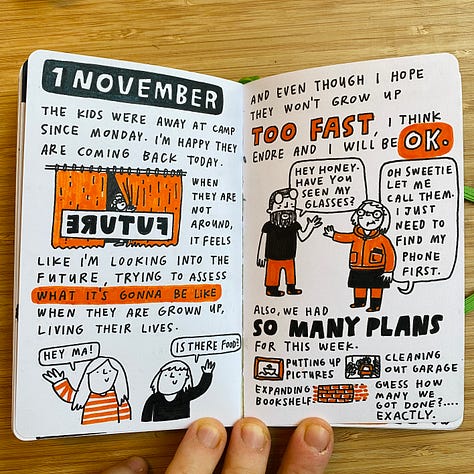 1 NOVEMBER
THE KIDS WERE AWAY AT CAMP
SINCE MONDAY. I'M HAPPY THEY
ARE COMING BACK TODAY.
FUTURE
WHEN
THEY ARE
NOT
AROUND,
IT FEELS
LIKE I'M LOOKING INTO THE
FUTURE, TRYING TO ASSESS
WHAT IT'S GONNA BE LIKE
WHEN THEY ARE GROWN UP,
LIVING THEIR LIVES.
HEY MA!
IS THERE FOOD?
AND EVEN THOUGH I HOPE
THEY WON'T GROW UP
TOO FAST, I THINK
ENDRE AND I WILL BE OK.
HEY HONEY.
HAVE YOU
SEEN MY
GLASSES?
OH SWEETIE
LET ME
CALL THEM.
I JUST
NEED TO
FIND MY
PHONE
FIRST.
ALSO, WE HAD
SO MANY PLANS
FOR THIS WEEK.
PUTTING UP
PICTURES
CLEANING
OUT GARAGE
EXPANDING
BOOKSHELF
GUESS HOW
MANY WE
GOT DONE?....
EXACTLY.